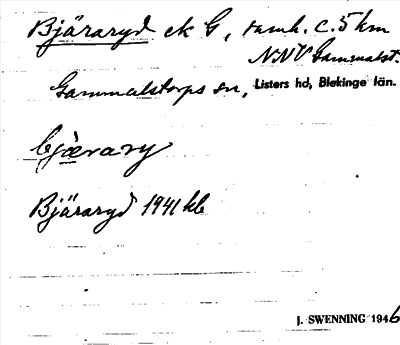 Bjäraryd ek G, samh. c. 5 km
NNV Gammalst.
Gammalstorps sn, Listers hd, Blekinge län.
bjærary
Bjäraryd 1941 kb
J. SWENNING 1946